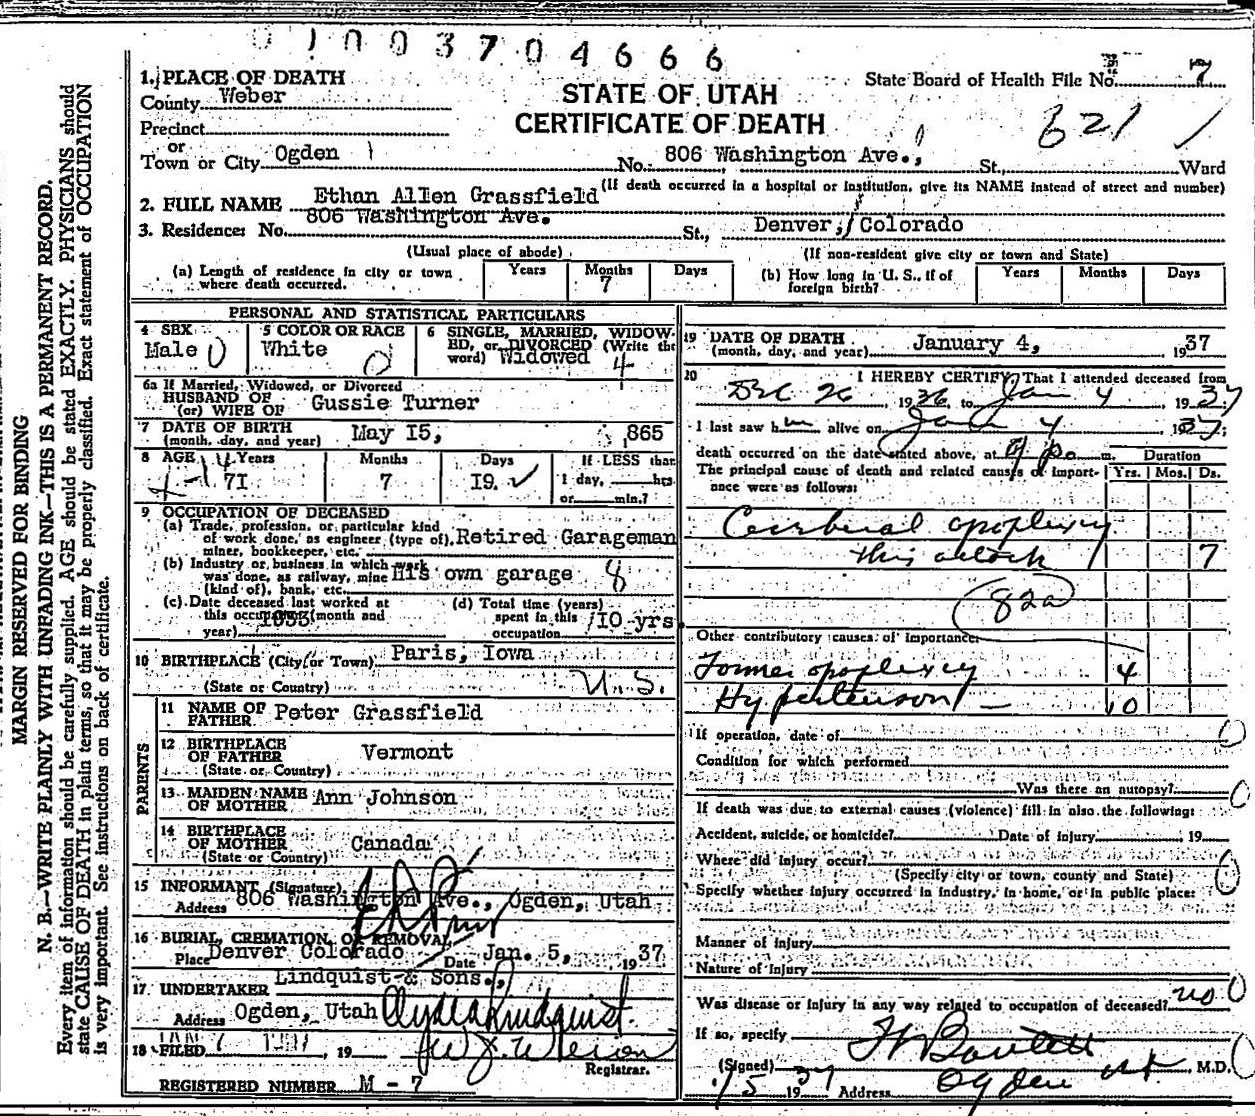 0 1 0 0 3 7 0 4 6 6 6
1. PLACE OF DEATH
County Weber
Precinct
or
Town or City Ogden
STATE OF UTAH
CERTIFICATE OF DEATH
State Board of Health File No. 7
621
No. 806 Washington Ave., St., Ward
(If death occurred in a hospital or institution, give its NAME instead of street and number)
2. FULL NAME Ethan Allen Grassfield
3. Residence: No. 806 Washington Ave. St., Denver, Colorado
(Usual place of abode) (If non-resident give city or town and State)
(a) Length of residence in city or town where death occurred. Years Months 7 Days
(b) How long in U. S., if of foreign birth? Years Months Days
PERSONAL AND STATISTICAL PARTICULARS
4 SEX Male
5 COLOR OR RACE White
6 SINGLE, MARRIED, WIDOWED, or DIVORCED (Write the word) Widowed 4
6a If Married, Widowed, or Divorced
HUSBAND OF
(or) WIFE OF Gussie Turner
7 DATE OF BIRTH
(month, day, and year) May 15, 1865
8 AGE Years 71 Months 7 Days 19
If LESS than
1 day, hrs.
or min.?
9 OCCUPATION OF DECEASED
(a) Trade, profession, or particular kind
of work done, as engineer (type of), Retired Garageman
miner, bookkeeper, etc.
(b) Industry or business in which work
was done, as railway, mine His own garage 8
(kind of), bank, etc.
(c) Date deceased last worked at
this occupation (month and
year) 1933
(d) Total time (years)
spent in this 10 yrs.
occupation
10 BIRTHPLACE (City or Town) Paris, Iowa
(State or Country) U. S.
PARENTS
11 NAME OF
FATHER Peter Grassfield
12 BIRTHPLACE
OF FATHER Vermont
(State or Country)
13 MAIDEN NAME
OF MOTHER Ann Johnson
14 BIRTHPLACE
OF MOTHER Canada
(State or Country)
15 INFORMANT (Signature)
Address 806 Washington Ave., Ogden, Utah
16 BURIAL, CREMATION, OR REMOVAL
Place Denver Colorado Date Jan. 5, 1937
17 UNDERTAKER Lindquist & Sons.,
Address Ogden, Utah Clyde Lindquist
18 FILED JAN 7 1937, 19
Registrar.
REGISTERED NUMBER M - 7
19 DATE OF DEATH
(month, day, and year) January 4, 1937
20 I HEREBY CERTIFY, That I attended deceased from
Dec 26, 1936, to Jan 4, 1937
I last saw him alive on Jan 4 1937;
death occurred on the date stated above, at m. Duration
The principal cause of death and related causes of importance were as follows: Yrs. Mos. Ds.
Cerebral apoplexy
this attack 7
82a
Other contributory causes of importance:
Former apoplexy 4
Hypertension 10
If operation, date of
Condition for which performed
Was there an autopsy?
If death was due to external causes (violence) fill in also the following:
Accident, suicide, or homicide? Date of injury 19
Where did injury occur?
(Specify city or town, county and State)
Specify whether injury occurred in industry, in home, or in public place:
Manner of Injury
Nature of Injury
Was disease or injury in any way related to occupation of deceased? no
If so, specify
(Signed) M.D.
1/5 1937 Address Ogden Ut
MARGIN RESERVED FOR BINDING
N. B.—WRITE PLAINLY WITH UNFADING INK—THIS IS A PERMANENT RECORD.
Every item of information should be carefully supplied. AGE should be stated EXACTLY. PHYSICIANS should
state CAUSE OF DEATH in plain terms, so that it may be properly classified. Exact statement of OCCUPATION
is very important. See instructions on back of certificate.